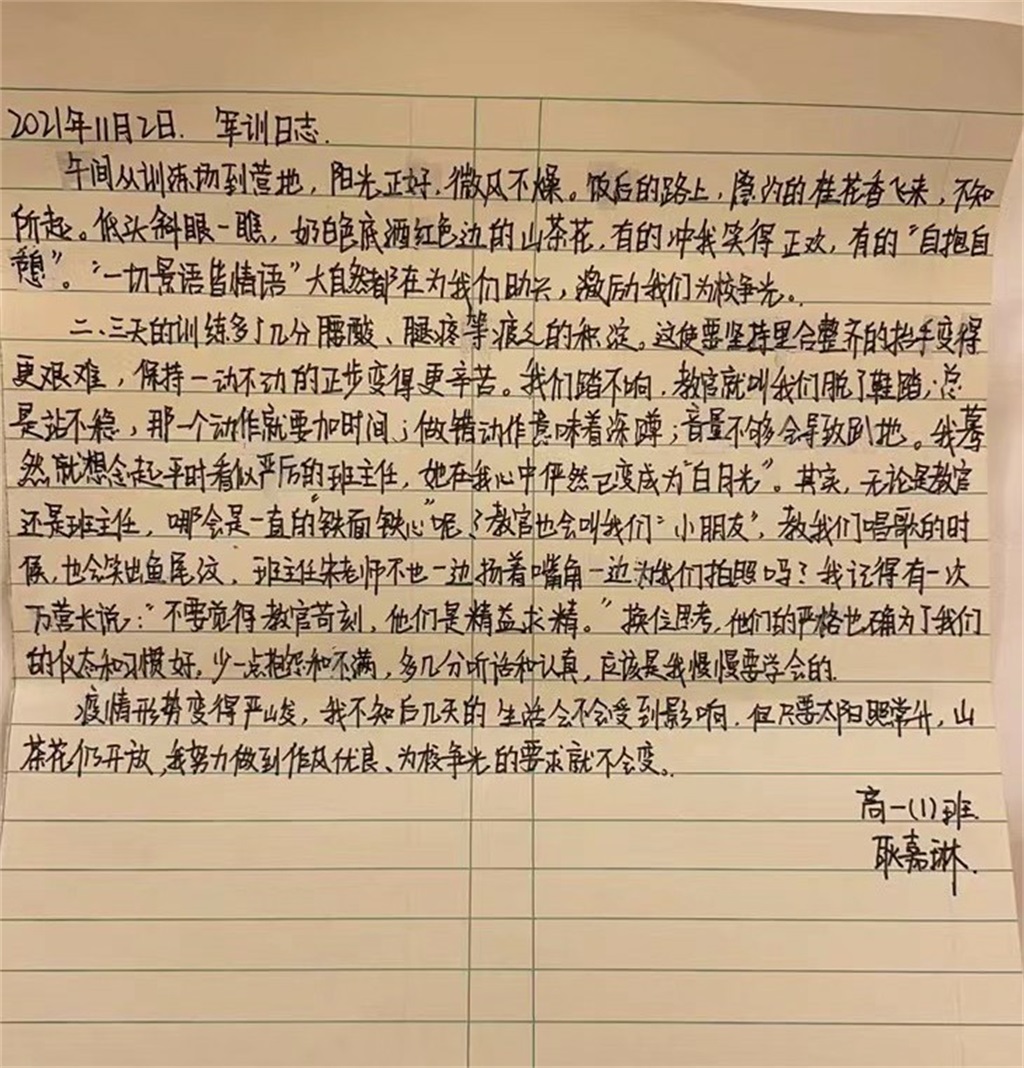 2021年11月2日. 军训日志.
午间从训练场到营地，阳光正好，微风不燥。饭后的路上，隐约的桂花香飞来，不知
所起。低头斜眼一瞧，奶白色底酒红色边的山茶花，有的冲我笑得正欢，有的“自抱自
憩”。“一切景语皆情语”大自然都在为我们助兴，激励我们为校争光。
二、三天的训练多了几分腰酸、腿疼等疲乏的积淀。这使要坚持里合整齐的抬手变得
更艰难，保持一动不动的正步变得更辛苦。我们踏不响，教官就叫我们脱了鞋踏；总
是站不稳，那一个动作就要加时间；做错动作意味着深蹲；音量不够会导致趴地。我蓦
然就想念起平时看似严厉的班主任，她在我心中俨然已变成为“白月光”。其实，无论是教官
还是班主任，哪会是一直的“铁面铁心”呢？教官也会叫我们“小朋友”，教我们唱歌的时
候，也会笑出鱼尾纹，班主任朱老师不也一边扬着嘴角一边为我们拍照吗？我记得有一次
万营长说：“不要觉得教官苛刻，他们是精益求精。”换位思考，他们的严格也确为了我们
的仪态和习惯好，少一点抱怨和不满，多几分听话和认真，应该是我慢慢要学会的.
疫情形势变得严峻，我不知后几天的生活会不会受到影响.但只要太阳照常升，山
茶花仍开放，我努力做到作风优良、为校争光的要求就不会变。
高一(1)班.
耿嘉琳.